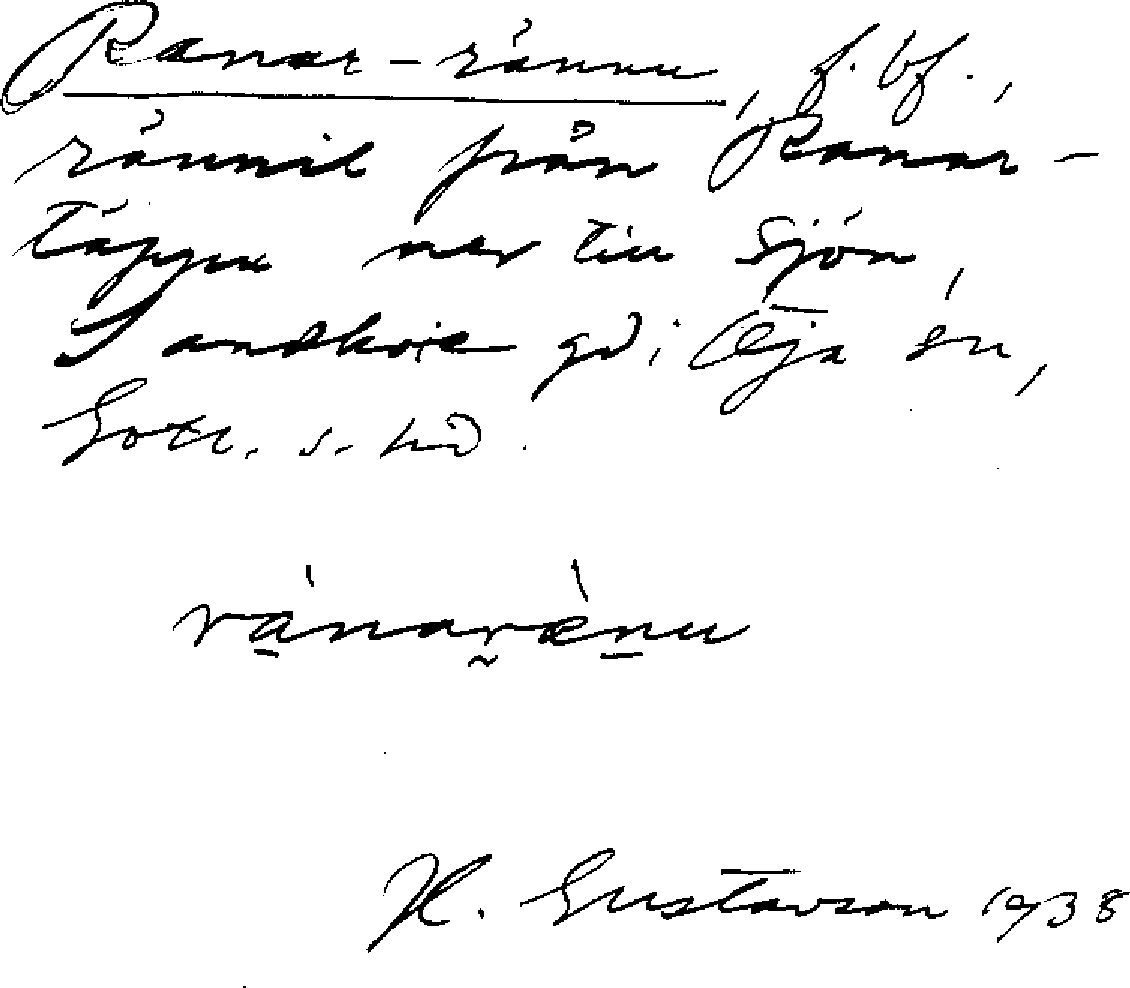 Ranar-rännu, f. bf.,
rännil från Ranar-
täppu ner till sjön,
Sandkvie gd i Öja sn,
Gotl. s. hd.
ránaræ̀nu
H. Gustavson 1938